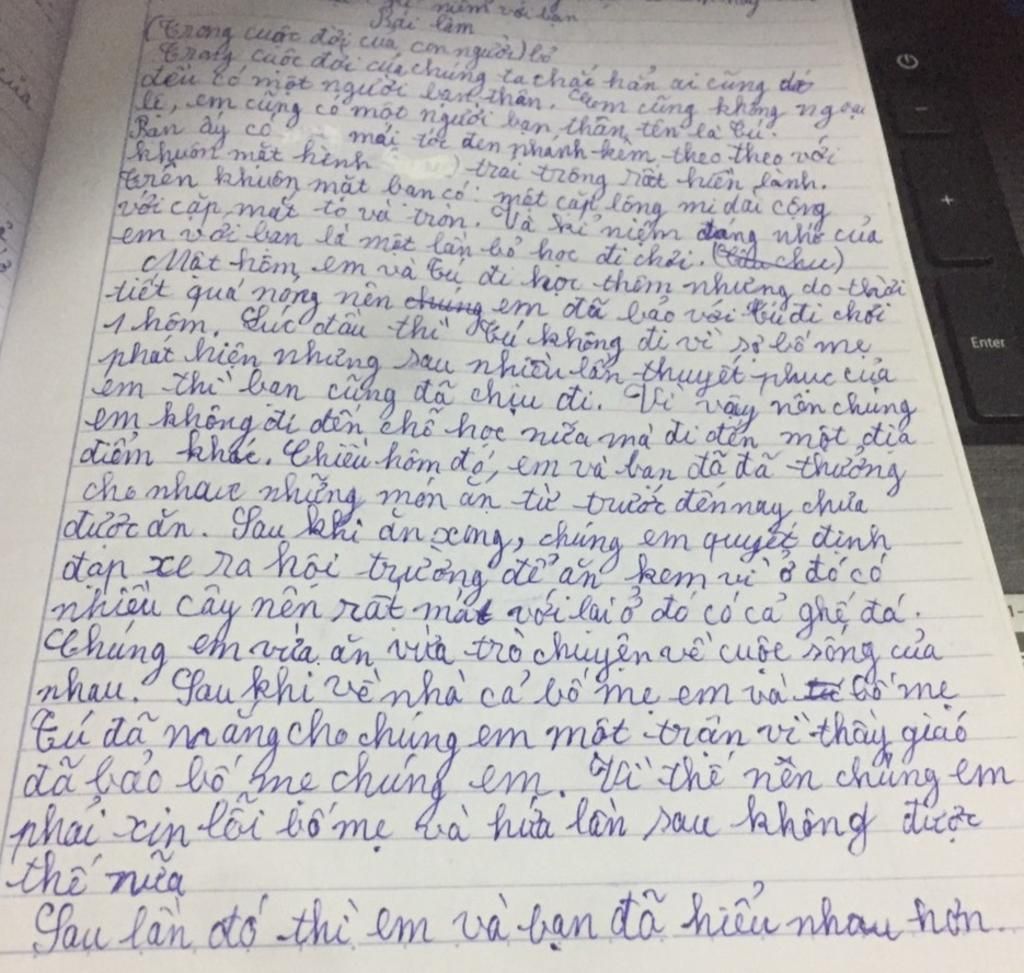 niệm với bạn
Bài làm
(Trong cuộc đời của con người) bỏ
Trong cuộc đời của chúng ta chắc hẳn ai cũng
đều có một người bạn thân. Em cũng không ngoại
lệ, em cũng có một người bạn thân tên là Tú.
Bạn ấy có mái tóc đen nhánh kèm theo theo với
khuôn mặt hình trái trông rất hiền lành.
Trên khuôn mặt bạn có: một cặp lông mi dài cộng
với cặp mắt to và tròn. Và kỉ niệm đáng nhớ của
em với bạn là một lần bỏ học đi chơi.
Một hôm, em và Tú đi học thêm nhưng do thời
tiết quá nóng nên chúng em đã bảo với Tú đi chơi
1 hôm. Lúc đầu thì Tú không đi vì sợ bố mẹ
phát hiện nhưng sau nhiều lần thuyết phục của
em thì bạn cũng đã chịu đi. Vì vậy nên chúng
em không đi đến chỗ học nữa mà đi đến một địa
điểm khác. Chiều hôm đó, em và bạn đã đã thưởng
cho nhau những món ăn từ trước đến nay chưa
được ăn. Sau khi ăn xong, chúng em quyết định
đạp xe ra hội trường để ăn kem vì ở đó có
nhiều cây nên rất mát với lại ở đó có cả ghế đá.
Chúng em vừa ăn vừa trò chuyện về cuộc sống của
nhau. Sau khi về nhà cả bố mẹ em và bố mẹ
Tú đã mắng cho chúng em một trận vì thầy giáo
đã bảo bố mẹ chúng em. Vì thế nên chúng em
phải xin lỗi bố mẹ và hứa lần sau không được
thế nữa
Sau lần đó thì em và bạn đã hiểu nhau hơn.
Enter